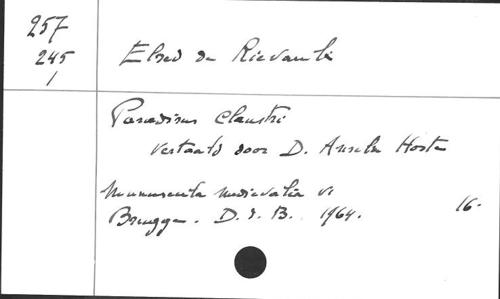 257
245
1
Elred de Rievaulx
Paradisus Claustri
vertaald door D. Anselm Hoste
Monumenta medievalia V
Brugge. D. d. B. 1964. 16-